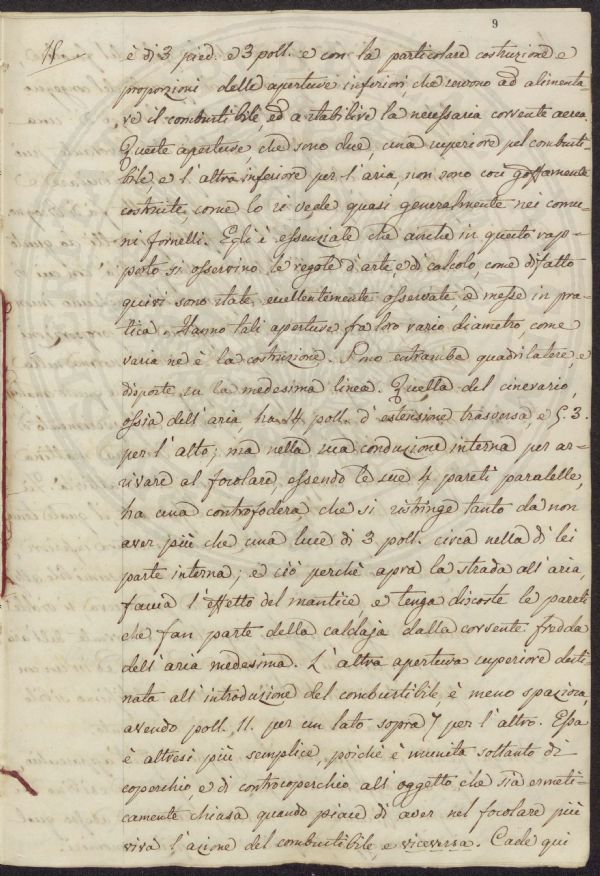 9
è di 3 pied. e 3 poll. e con la particolare costruzione e
proporzioni delle aperture inferiori, che servono ad alimenta
re il combustibile, ed a stabilire la necessaria corrente aerea.
Queste aperture, che sono due, una superiore pel combusti-
bile, e l'altra inferiore per l'aria, non sono così goffamente
costruite, come lo si vede quasi generalmente nei comu-
ni fornelli. Egli è essenziale che anche in questo rap-
porto si osservino le regole d'arte, e di calcolo, come difatto
quivi sono state eccellentemente osservate, e messe in pra
tica. Hanno tali aperture fa loro vario diametro come
varia ne è la costruzione. Sono entrambe quadrilatere, e
disposte su la medesima linea. Quella del cinerario,
ossia dell'aria, ha 14 poll. d'estensione trasversa, e 5.3.
per l'alto; ma nella sua conduzione interna per ar-
rivare al focolare, essendo le sue 4 pareti paralelle,
ha una controfodera, che si ristringe tanto da non
aver più che una luce di 3 poll. circa nella di lei
parte interna; e ciò perchè apra la strada all'aria,
faccia l'effetto del mantice, e tenga discoste le pareti
che fan parte della caldaja dalla corrente fredda
dell'aria medesima. L'altra apertura superiore desti-
nata all'introduzione del combustibile, è meno spaziosa,
avendo poll. 11. per un lato sopra 7 per l'altro. Essa
è altresì più semplice, poichè è munita soltanto di
coperchio, e di controcoperchio all'oggetto che sia ermeti-
camente chiusa quando piace di aver nel focolare più
viva l'azione del combustibile e viceversa. Cade qui